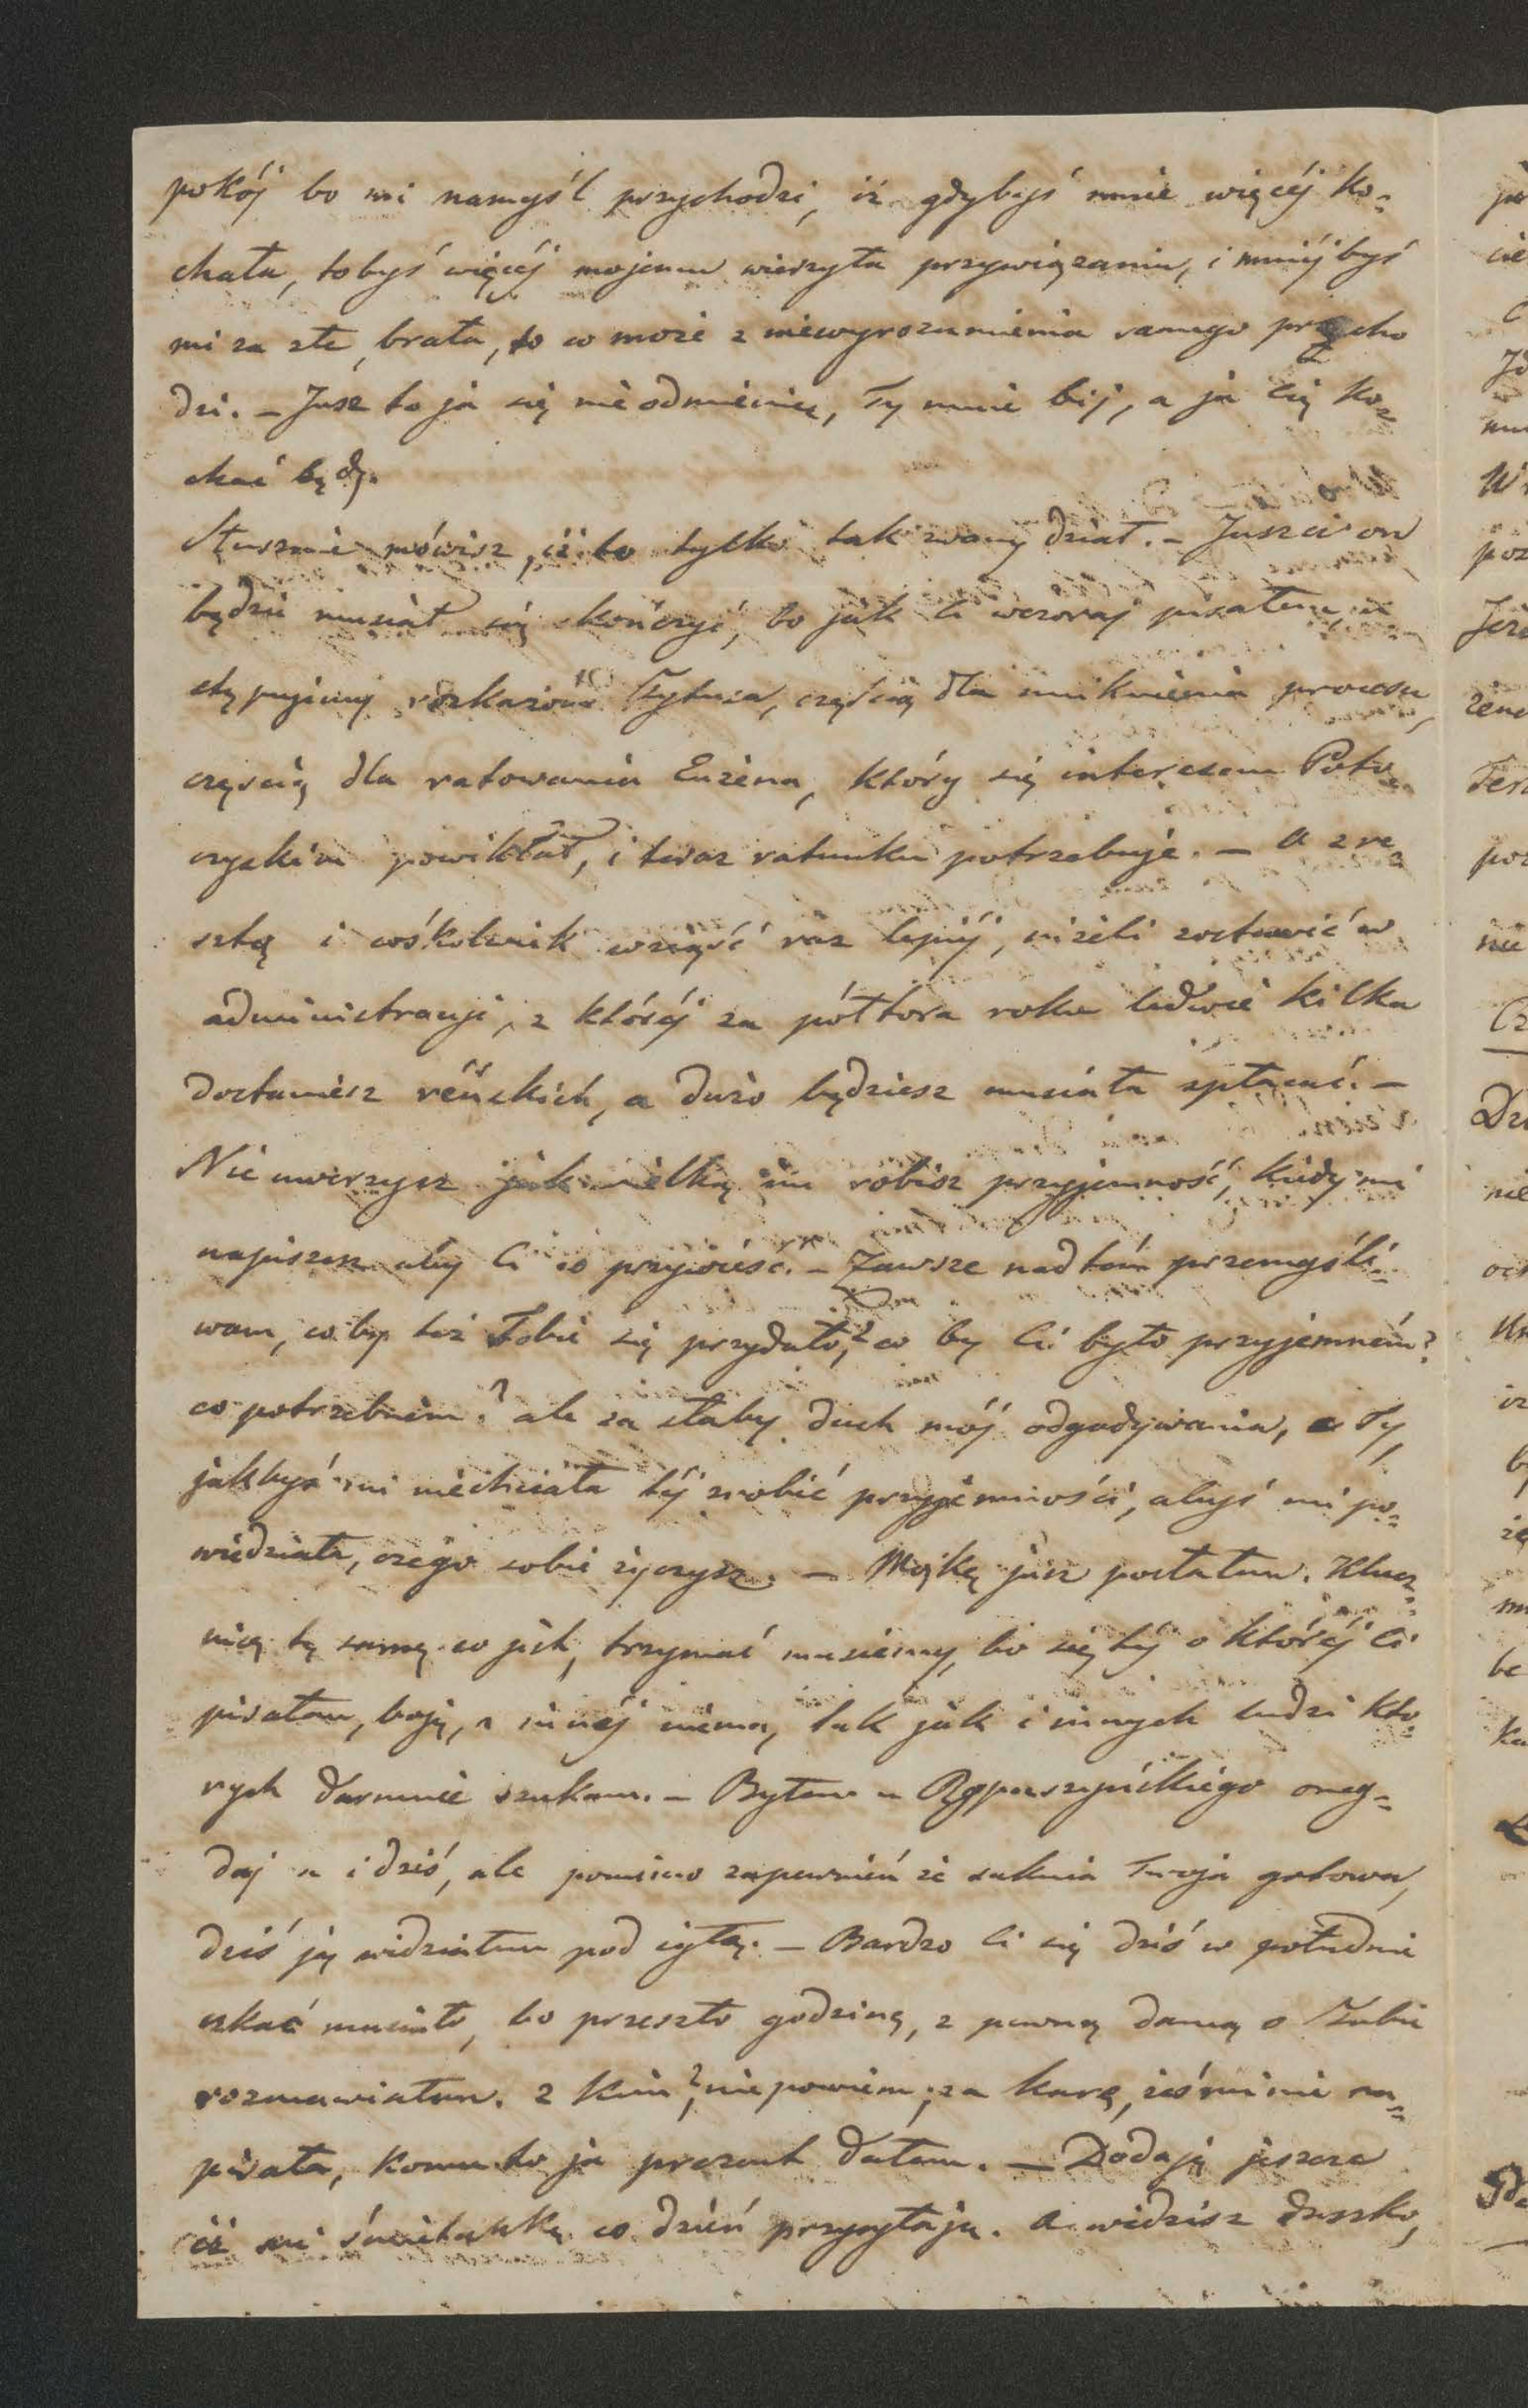 pokój bo mi namyśl przychodzi, iż gdybyś mnie więcéj ko=
chała, tobyś więcéj mojemu wierzyła przywiązaniu, i mniéj byś
mi za złe brała, to co może z niewyrozumienia samego przycho
dzi. – Jusz to ja się nieodmienię, Ty mnie bij, a ja Cię ko=
chać będę.
Słusznie mówisz, iż to tylko tak zwany dział. – Juszci on
będzie musiał się skończyć, bo jak Ci wczoraj pisałem, u
stępujemy Tytusa, częścią dla uniknienia procesu,
częścią dla ratowania Euzena, który się interesem Poto
czyskim powikłał, i teraz ratunku potrzebuje. – A zre=
sztą i cośkolwiek wziąść raz lepiéj, niżeli zostawić w
administracji, z któréj za półtora roku ledwie kilka
dostaniesz reńskich, a dużo będziesz musiała spłacać. –
Nie uwierzysz jak wielką mi robisz przyjemność, kiedy mi
napiszesz aby Ci co przywieść. – Zawsze nad tém przemyśli=
wam, co by też Tobie się przydało? co by Ci było przyjemném?
co potrzebném? ale za słaby duch mój odgadywania, a Ty
jakbyś mi niechciała téj zrobić przyjemności, abyś mi po=
wiedziała, czego sobie życzysz. – Mąkę jusz posłałem. Klucz=
nicę tę samę co jest, trzymać musiemy, bo się téj o któréj Ci
pisałem, boję, a innéj niema, tak jak i innych ludzi któ=
rych darmnie szukam. – Byłem u Rzpaszyńskiego oneg=
daj a i dziś, ale pomimo zapewnień że suknia Twoja gotowa,
dziś ją widziałem pod igłą. – Bardzo Ci się dziś w południe
czkać musiało, bo przeszło godzinę, z pewną damą o Tobie
rozmawiałem. Z kim? nie powiem, za karę, żeś mi nie na=
pisała, komu to ja prezent dałem. – Dodaję jeszcze
iż mi śmietankę co dzień przysyłają. A widzisz duszko,